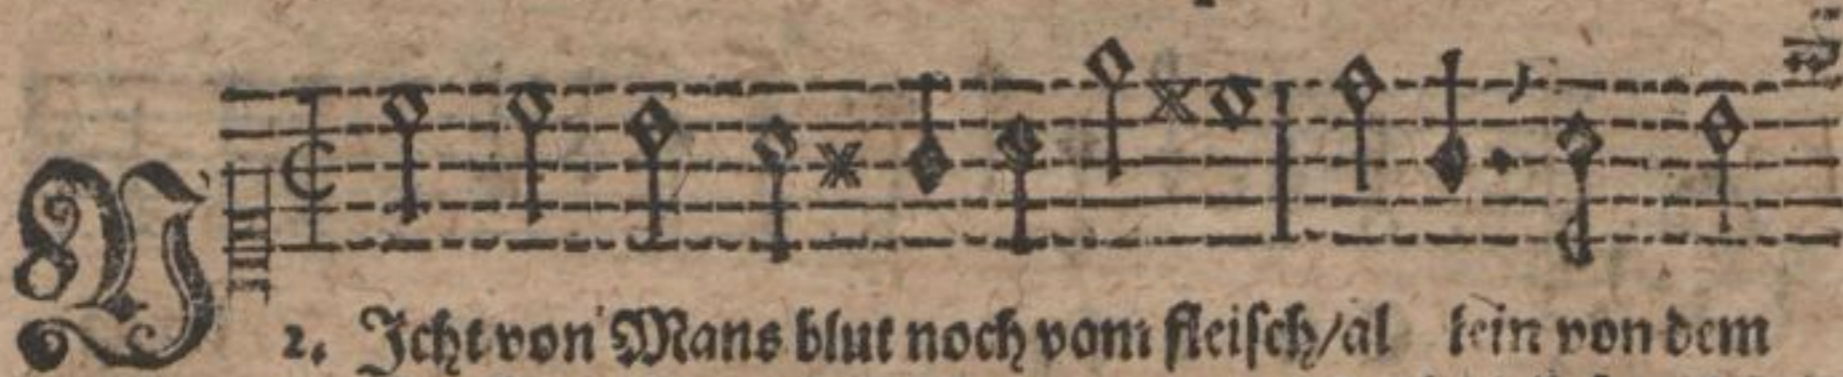 N
2. Jcht von Mans blut noch vom fleisch/al lein von dem